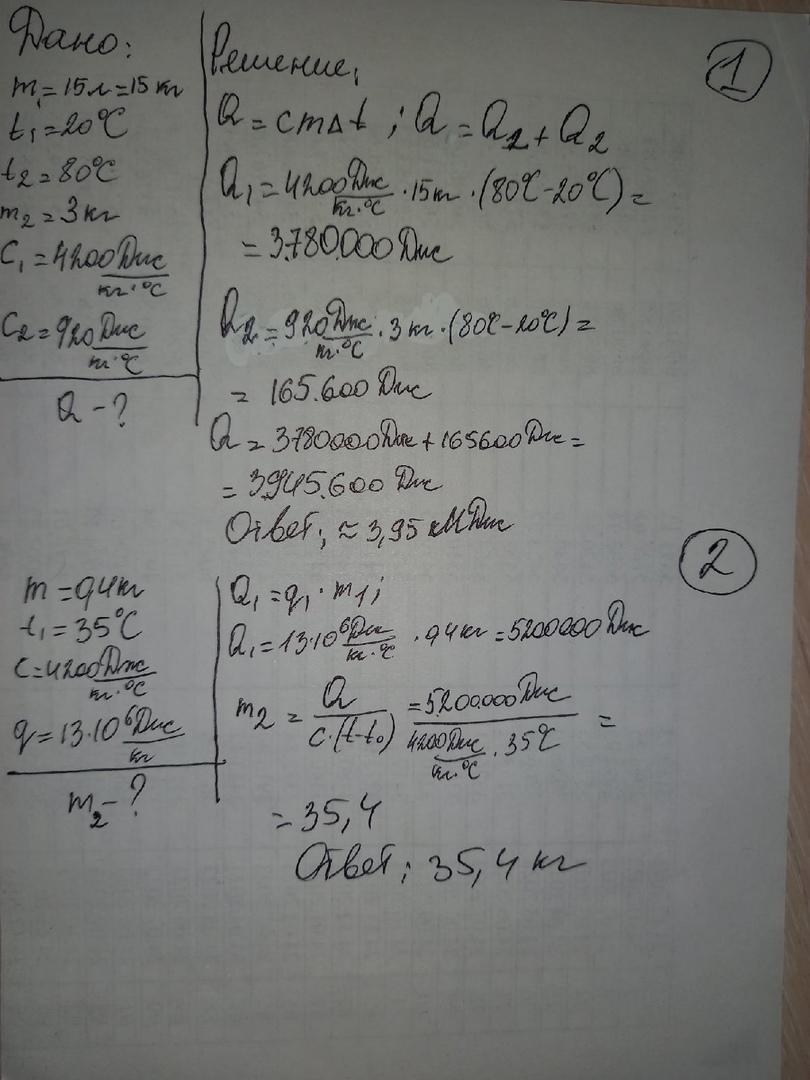 1
Дано:
m₁=15л=15кг
t₁=20°C
t₂=80°C
m₂=3кг
C₁=4200 Дж/кг·°C
C₂=920 Дж/кг·°C
Q-?
Решение:
Q=cm∆t; Q=Q₂+Q₂
Q₁=4200 Дж/кг·°C·15кг·(80°C-20°C)=
=3.780.000 Дж
Q₂=920 Дж/кг·°C·3кг·(80°C-20°C)=
=165.600 Дж
Q=3780000Дж+165600Дж=
=3945.600 Дж
Ответ: ≈3,95 МДж
2
m=0,4кг
t₁=35°C
c=4200 Дж/кг·°C
q=13·10⁶ Дж/кг
m₂-?
Q₁=q₁·m₁;
Q₁=13·10⁶ Дж/кг·°C·0,4кг=5200000 Дж
m₂=Q/c·(t-t₀)=5.200.000 Дж/4200 Дж/кг·°C·35°C=
=35,4
Ответ: 35,4 кг